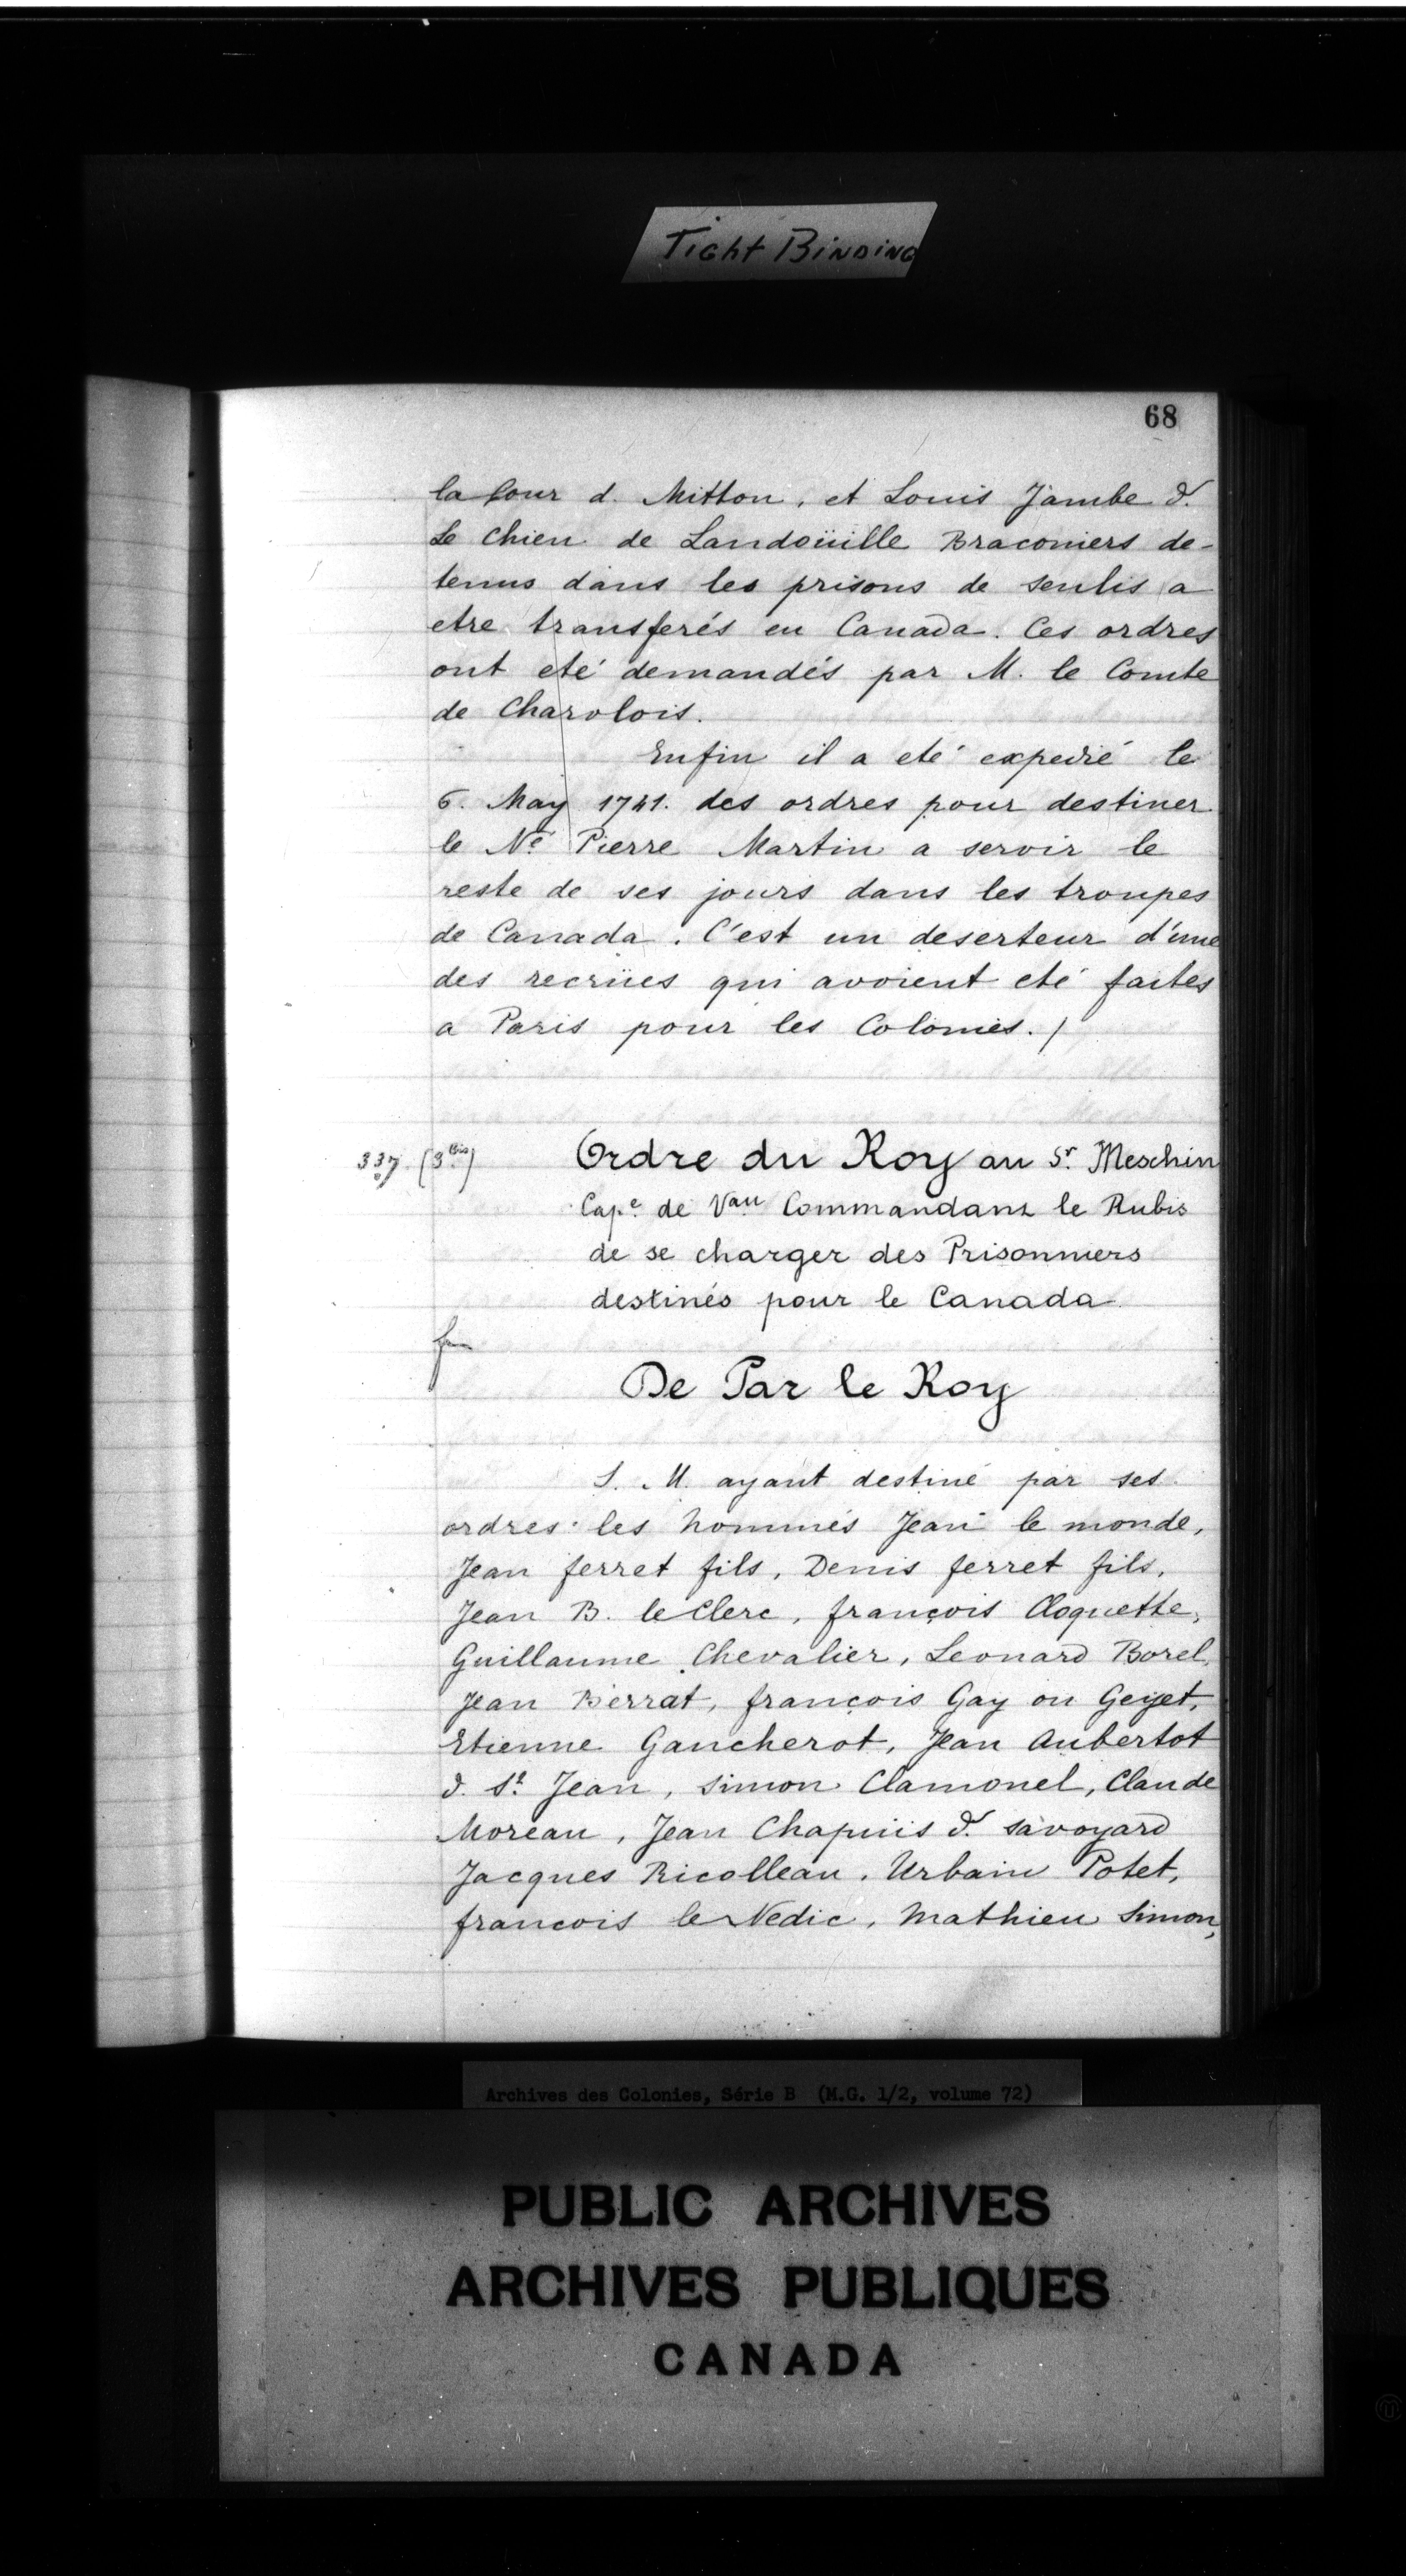 Tight Binding
68
la Cour d. Mitton, et Louis Jambe d.
Le Chien de Landoüille Braconiers de-
tenus dans les prisons de Senlis a
etre transferés en Canada. Ces ordres
ont eté demandés par M. le Comte
de Charolois.
Enfin il a eté expedié le
6. May 1741. des ordres pour destiner
le Né Pierre Martin a servir le
reste de ses jours dans les troupes
de Canada. C'est un deserteur d'une
des recrües qui avoient eté faites
a Paris pour les Colonies./
337 (3 bis)
Ordre du Roy au Sr. Meschin
Cape. de Vau Commandant le Rubis
de se charger des Prisonniers
destinés pour le Canada
De Par le Roy
S. M. ayant destiné par ses
ordres les nommés Jean le monde,
Jean ferret fils, Denis ferret fils,
Jean B. le Clerc, françois Cloquette,
Guillaume Chevalier, Leonard Borel,
Jean Berrat, françois Gay ou Geyet,
Etienne Gancherot, Jean Aubertot
d. St. Jean, Simon Clamonel, Claude
Moreau, Jean Chapuis d. savoyard
Jacques Ricolleau, Urbain Potet,
francois le Nedic, Mathieu Simon,
Archives des Colonies, Série B (M.G. 1/2, volume 72)
PUBLIC ARCHIVES
ARCHIVES PUBLIQUES
CANADA